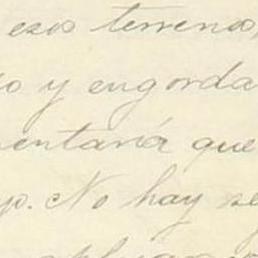 esos terrenos,
o y engorda
mentaría que
p. No hay se